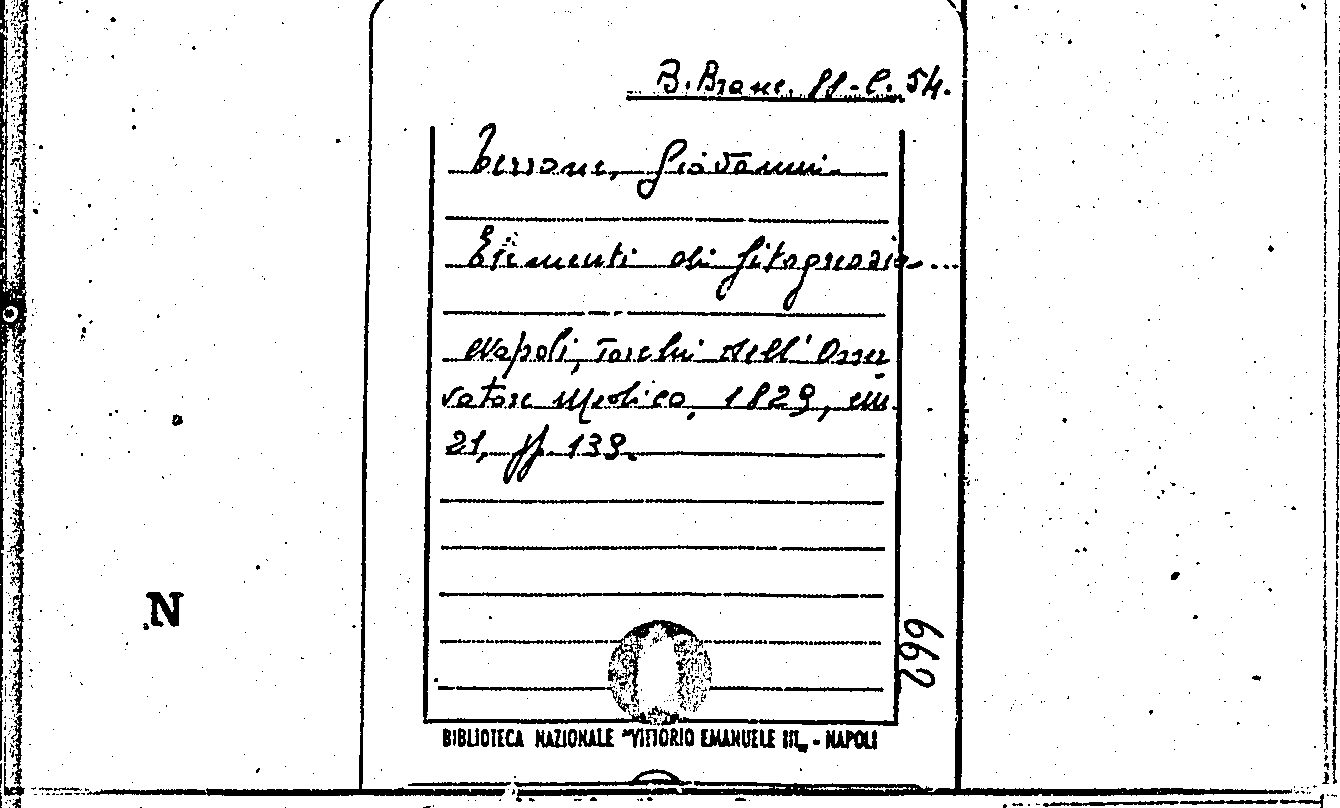 B. Branc. 11-C. 54.
Terrone, Giovanni.
Elementi di fitognosia....
Napoli, Torchi dell'Osser
vatore Medico, 1829, cm.
21, pp. 139.
N
662
BIBLIOTECA NAZIONALE "VITTORIO EMANUELE III„ - NAPOLI